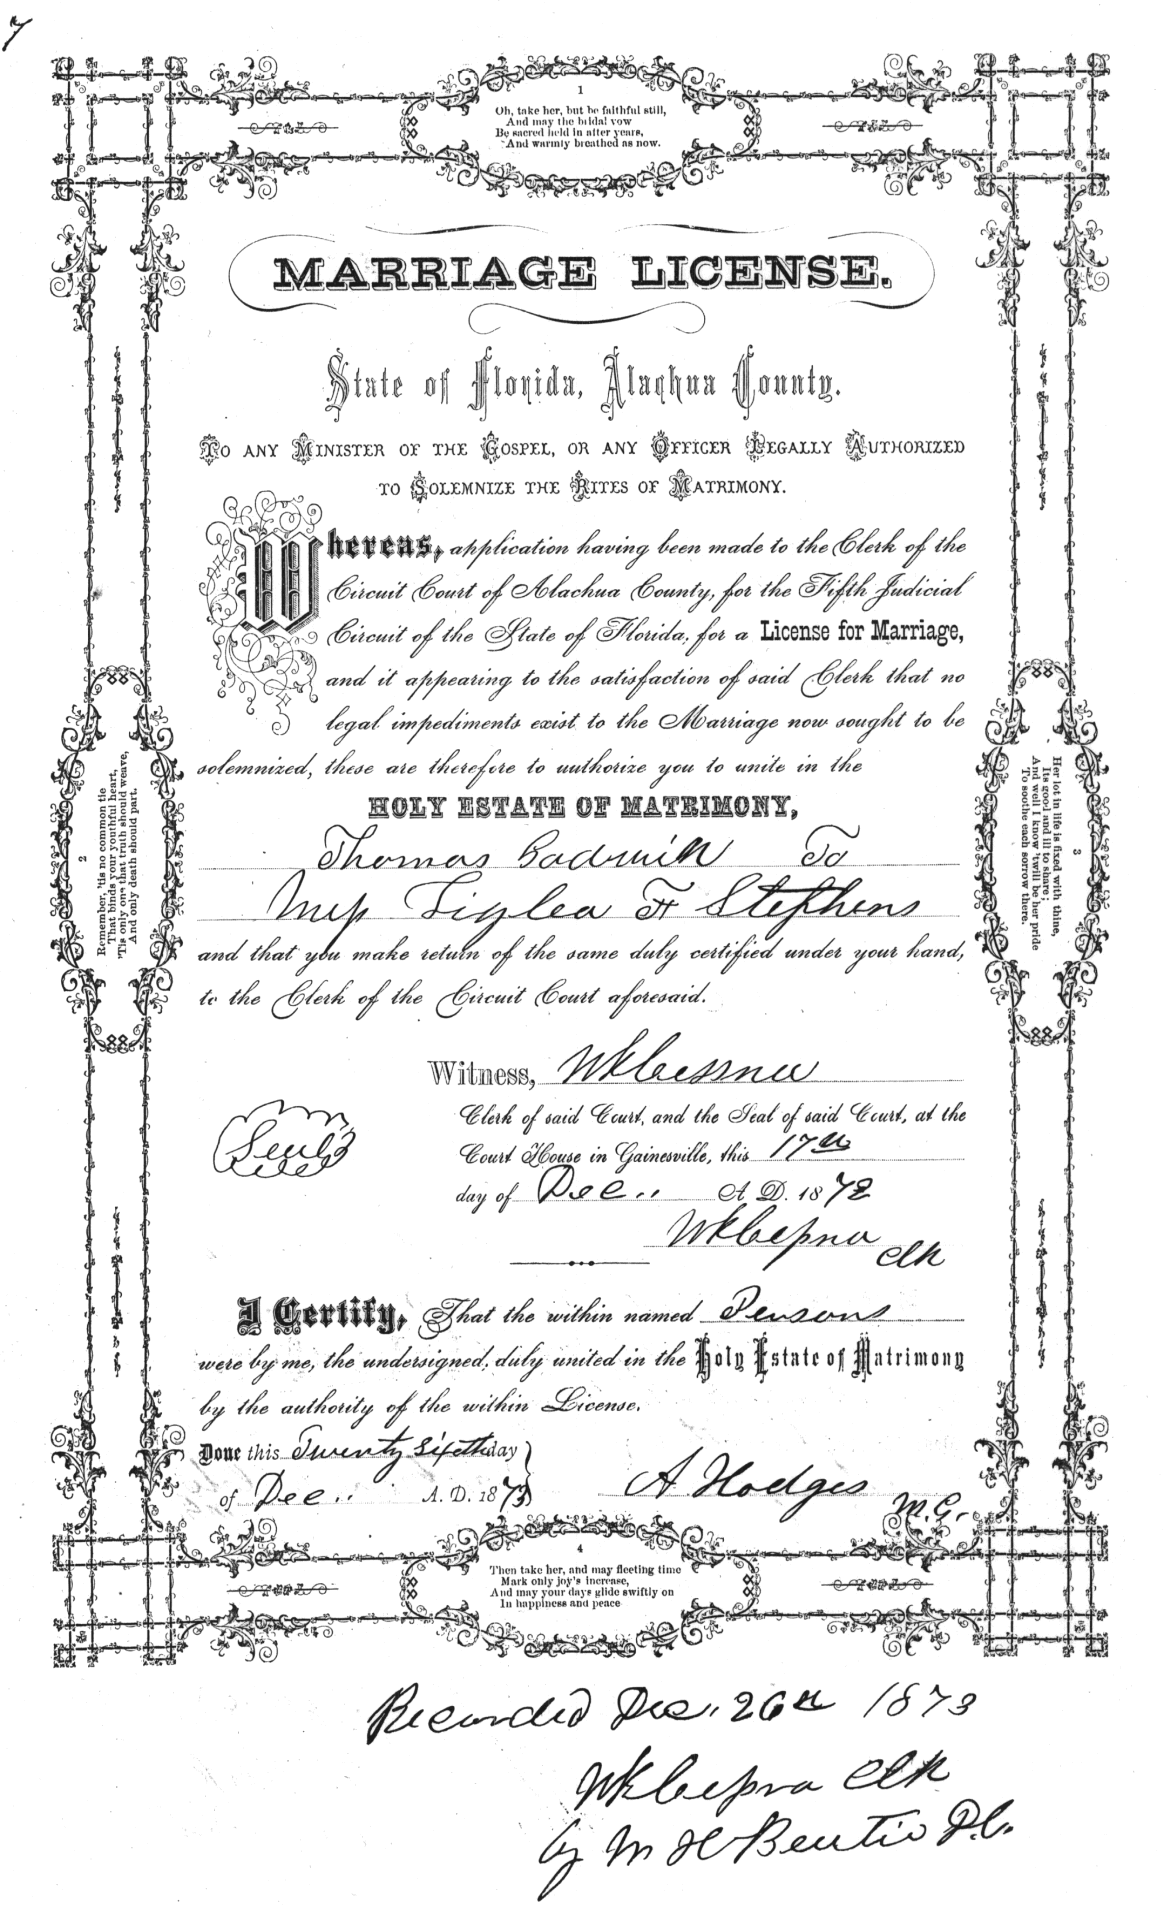 7
1
Oh, take her, but be faithful still,
And may the bridal vow
Be sacred held in after years,
And warmly breathed as now.
MARRIAGE LICENSE.
State of Florida, Alachua County.
To any Minister of the Gospel, or any Officer Legally Authorized
to Solemnize the Rites of Matrimony.
Whereas, application having been made to the Clerk of the
Circuit Court of Alachua County, for the Fifth Judicial
Circuit of the State of Florida, for a License for Marriage,
and it appearing to the satisfaction of said Clerk that no
legal impediments exist to the Marriage now sought to be
solemnized, these are therefore to authorize you to unite in the
HOLY ESTATE OF MATRIMONY,
Thomas To
Stephens
and that you make return of the same duly certified under your hand,
to the Clerk of the Circuit Court aforesaid.
2
Remember, 'tis no common tie
That binds your youthful heart,
'Tis only one that truth should weave,
And only death should part.
3
Her lot in life is fixed with thine,
Its good and ill to share;
And well I know 'twill be her pride
To soothe each sorrow there.
Witness, WKCessna
Clerk of said Court, and the Seal of said Court, at the
Seal
Court House in Gainesville, this 17th
day of Dec.. A. D. 1873
WKCessna
Clk
I Certify, That the within named Persons
were by me, the undersigned, duly united in the Holy Estate of Matrimony
by the authority of the within License.
Done this Twenty Sixth day
of Dec.. A. D. 1873
A Hodges
M.G.
4
Then take her, and may fleeting time
Mark only joy's increase,
And may your days glide swiftly on
In happiness and peace
Recorded Dec.. 26th 1873
WKCessna Clk
by M H D.C.